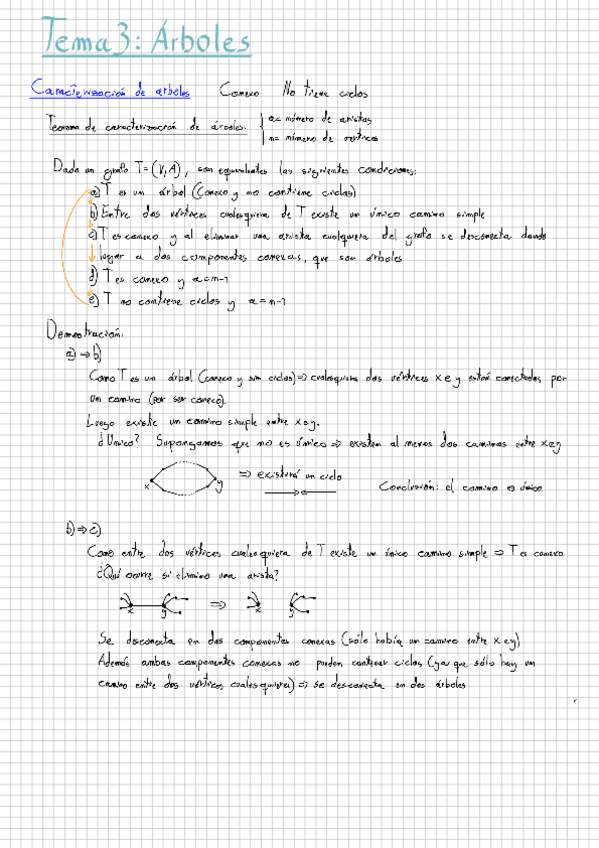 Tema 3: Árboles
Caracterización de árboles Conexo No tiene ciclos
Teorema de caracterización de árboles: a = número de aristas
n = número de vértices
Dado un grafo T=(V,A), son equivalentes las siguientes condiciones:
a) T es un árbol (Conexo y no contiene ciclos)
b) Entre dos vértices cualesquiera de T existe un único camino simple
c) T es conexo y al eliminar una arista cualquiera del grafo se desconecta dando
lugar a dos componentes conexas, que son árboles
d) T es conexo y a=n-1
e) T no contiene ciclos y a=n-1
Demostración:
a) ⇒ b)
Como T es un árbol (conexo y sin ciclos) ⇒ cualesquiera dos vértices x e y están conectados por
un camino (por ser conexo).
Luego existe un camino simple entre x e y.
¿Único? Supongamos que no es único ⇒ existen al menos dos caminos entre x e y
x y ⇒ existirá un ciclo
Conclusión: el camino es único
b) ⇒ c)
Como entre dos vértices cualesquiera de T existe un único camino simple ⇒ T es conexo
¿Qué ocurre si elimino una arista?
x y ⇒ x y
Se desconexta en dos componentes conexas (sólo había un camino entre x e y)
Además ambas componentes conexas no pueden contener ciclos (ya que sólo hay un
camino entre dos vértices cualesquiera) ⇒ se desconecta en dos árboles